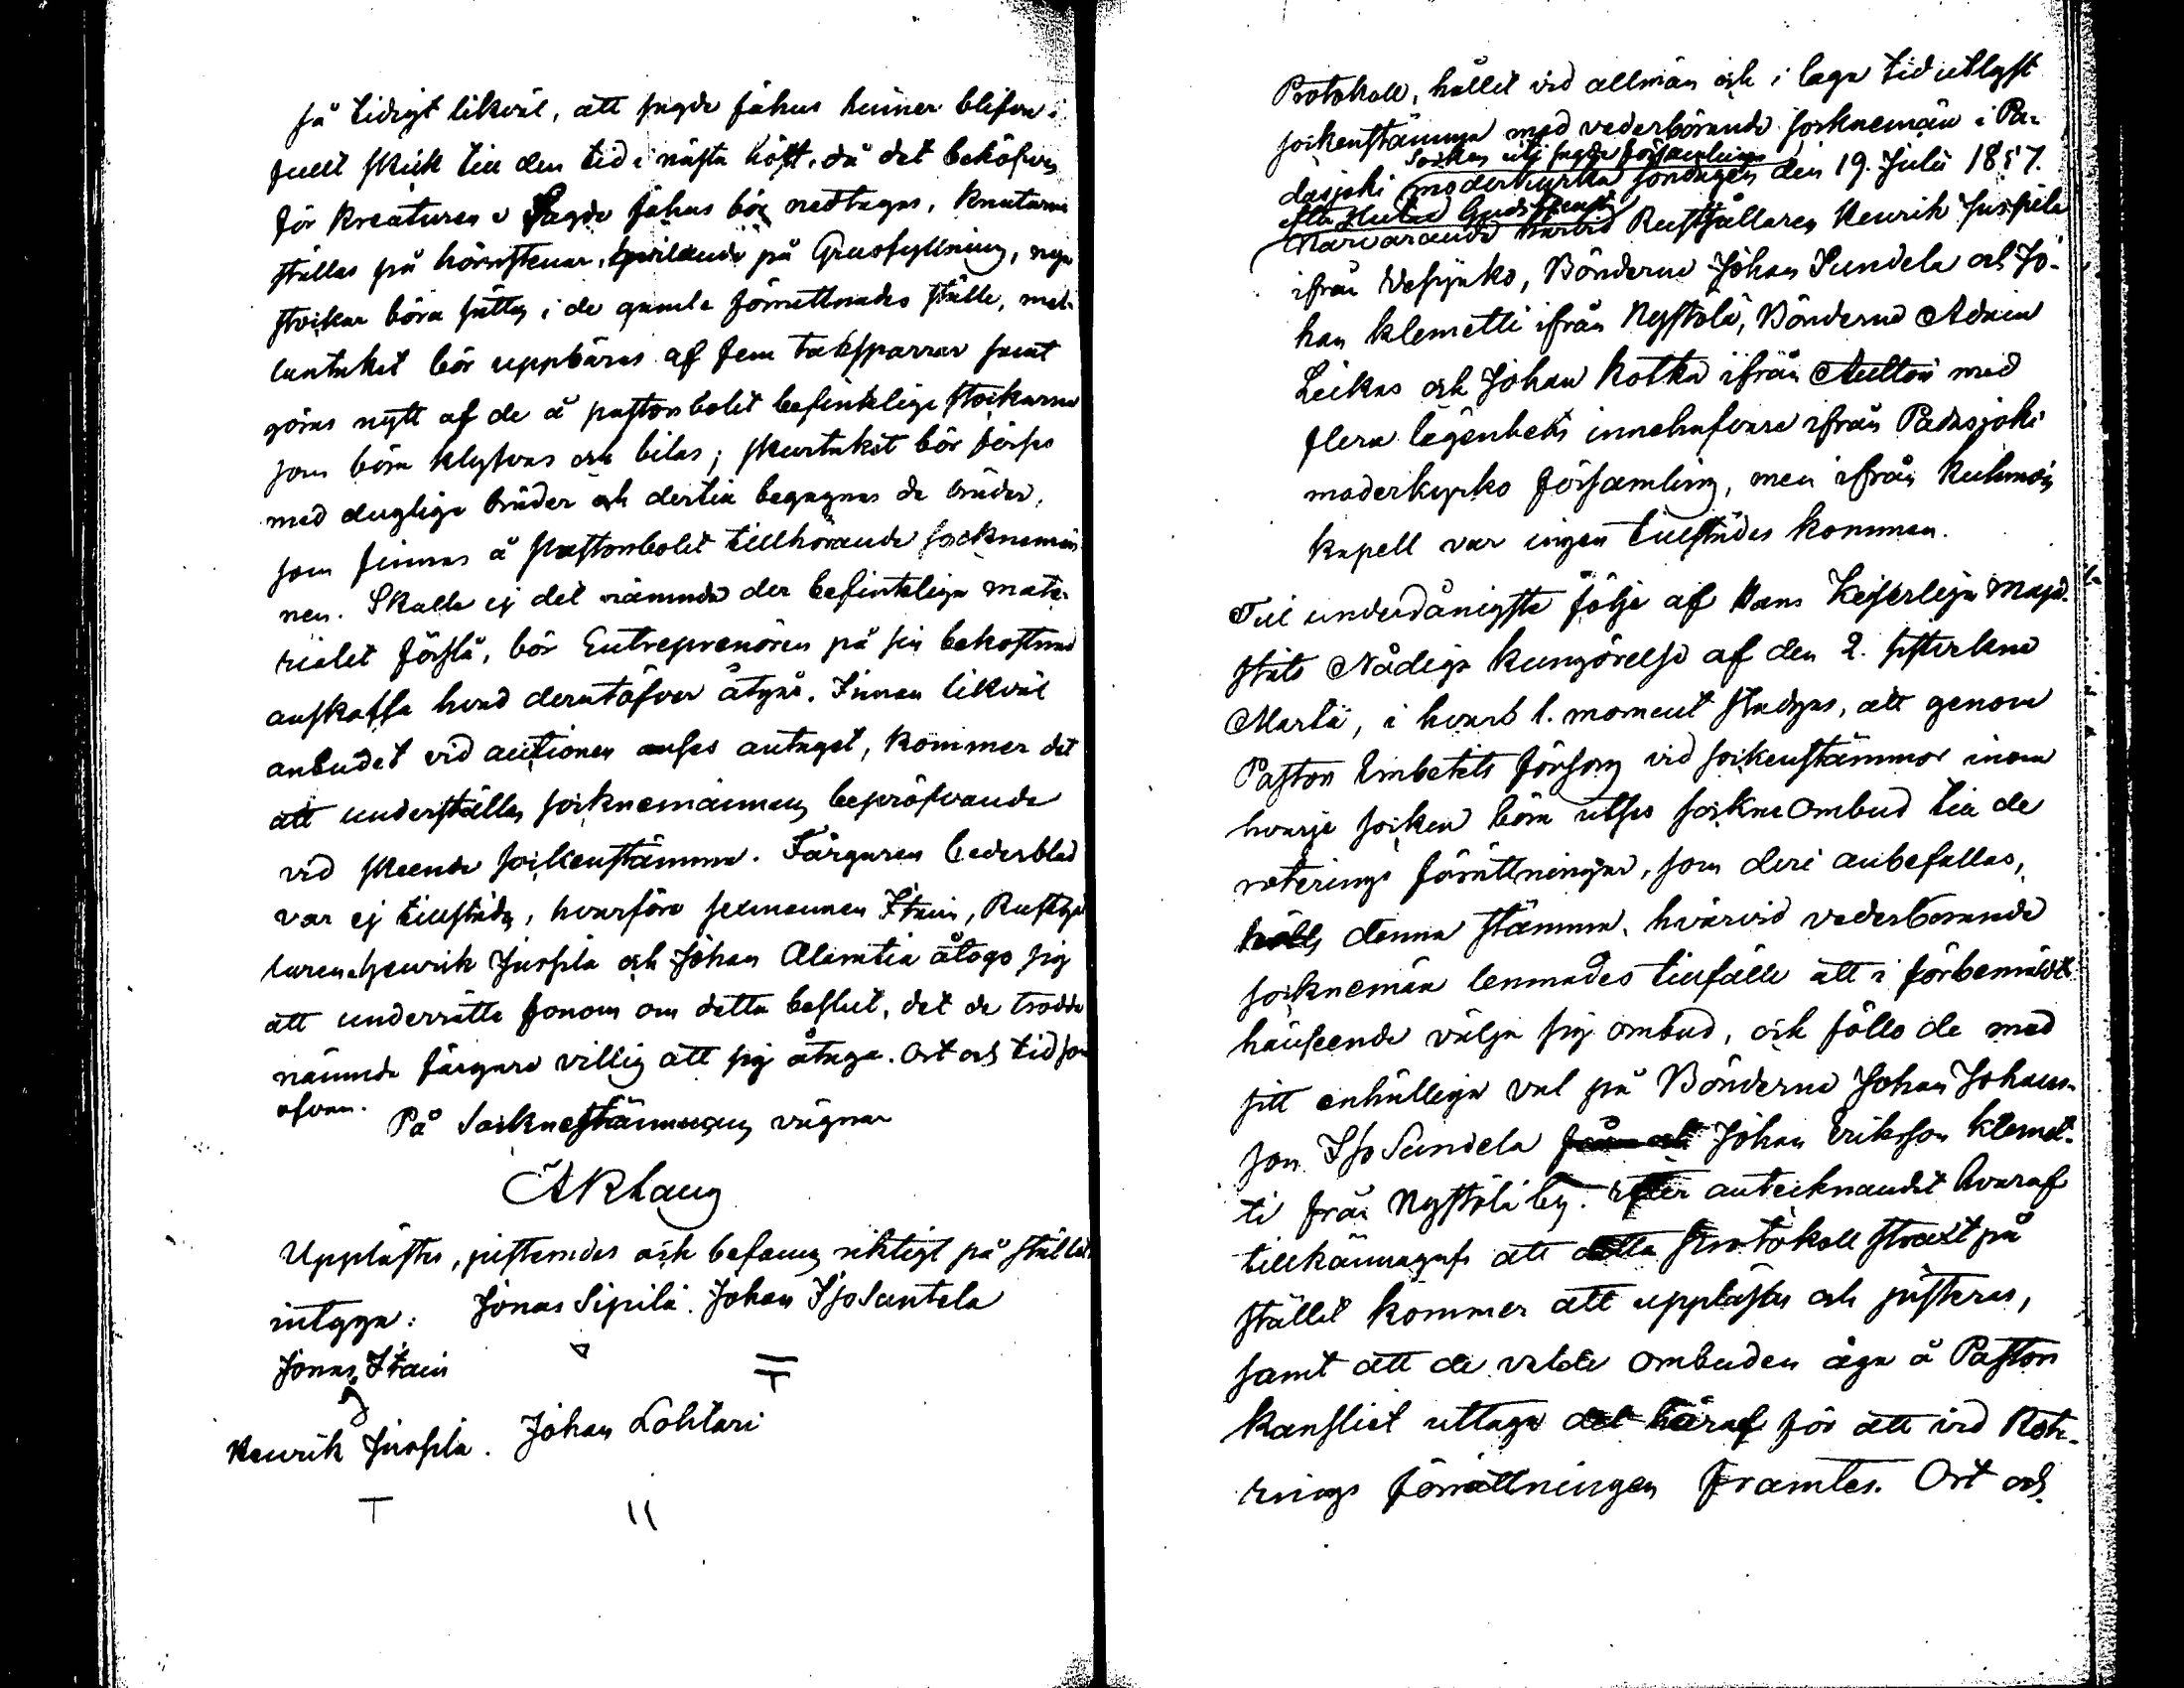 så tidigt likväl, att sagde fähus hinner blifva i
fullt skick till den tid i nästa höst, då det behöfves
för kreaturen. Sagde fähus bör nedtagas, knutarne
ställas på hörnstenar, hvilande på Grusfyllning, nya
stockar böra sättas i de gamla förruttnades ställe, mel-
lantaket bör uppbäras af fem taksparrar samt
göras nytt af de å pastorsbolet befintelige stockarne
som böra klyfvas och bilas; skurtaket bör förses
med duglige bräder och dertill begagnas de bräder,
som finnas å Pastorsbolet tillhörande socknemän-
nen. Skulle ej det nämnda der befinteliga mate-
rialet förslå, bör Entreprenören på sin bekostnad
anskaffa hvad derutöfver åtgår. Innan likväl
anbudet vid auctionen anses antaget, kommer det
att underställas socknemännens bepröfvande
vid skeende sockenstämma. Färgaren Cederblad
var ej tillstädes, hvarföre sexmannen Itain, Rusthål-
laren Henrik Juspila och Johan Alamtia åtogo sig
att underrätta honom om detta beslut, det de trodde
nämnde färgare villig att sig åtaga. Ort och tid som
ofvan.
På Socknestämmans vägnar
A Rlang
Upplästes, justerades och befanns riktigt på stället
intyga: Jonas Sipilä. Johan Iso Santala
Jonas Itain
Henrik Juspila. Johan Lohtari
Protokoll, hållet vid allmän och i laga tid utlyst
sockenstämma med vederbörande socknemän i Pa-
Socken uti sagde församlings
dasjoki moderkyrka söndagen den 19. Julii 1857.
efter slutad Gudstjenst
Närvarande härvid Rusthållaren Henrik Juspila
ifrån Vesijako, Bönderne Johan Sandela och Jo-
han Klemetti ifrån Nystölä, Bönderne Adam
Leikas och Johan Kotka ifrån Auttois med
flera lägenhets innehafvare ifrån Padasjoki
moderkyrko församling, men ifrån Kuhmois
kapell var ingen tillstädes kommen.
Till underdånigste följe af Hans Kejserliga Maje-
stäts Nådiga kungörelse af den 2. sistvikne
Martii, i hvars 1. moment stadgas, att genom
Pastors Embetets försorg vid sockenstämmor inom
hvarje socken böra utses sockne Ombud till de
roterings förrättningar, som deri anbefallas,
hölls denna stämma, hvarvid vederbörande
socknemän lemnades tillfälle att i förbemäldt
hänseende välja sig ombud, och föllo de med
sitt enhälliga val på Bönderne Johan Johans-
son Iso Sandela Johan Eriksson Klemet-
ti från Nystölä by. Efter antecknandet hvaraf
tillkännagafs att detta Protokoll straxt på
stället kommer att uppläsas och justeras,
samt att de valde Ombuden äga å Pastors
kansliet uttaga det häraf för att vid Rote-
rings förrättningen framtes. Ort och